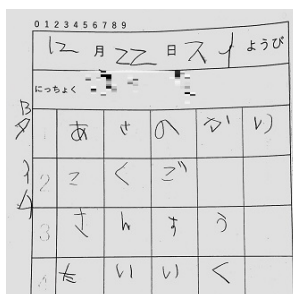 0 1 2 3 4 5 6 7 8 9
12月22日スイようび
にっちょく
Bタイム
1 あさのかい
2 こくご
3 さんすう
4 たいいく